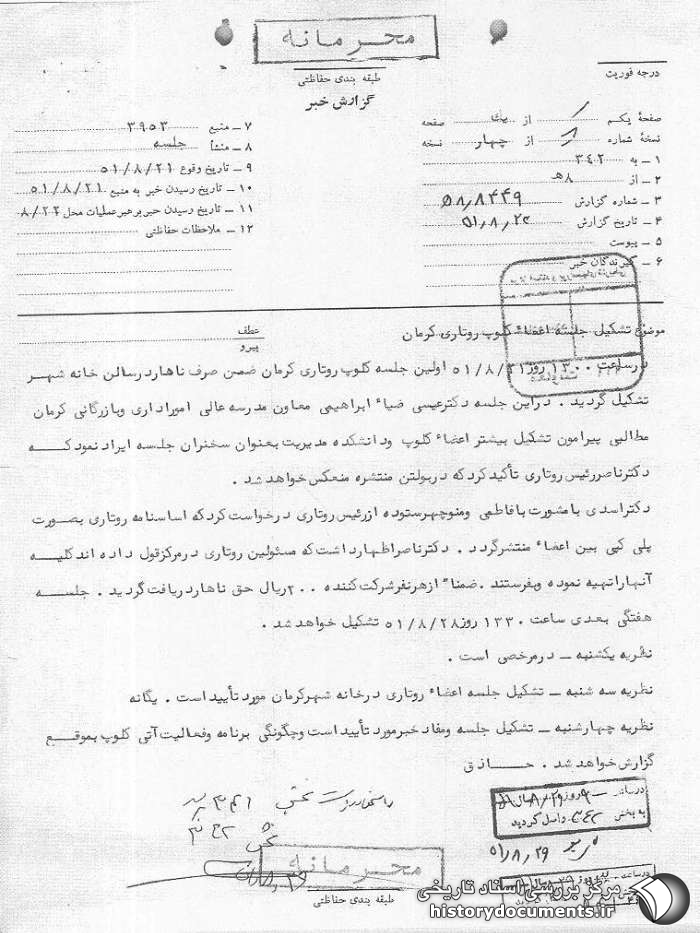 محرمانه
طبقه بندی حفاظتی
گزارش خبر
درجه فوریت
صفحهٔ یکم از یک صفحه
نسخهٔ شماره از چهار نسخه
۱ ــ به ۳۴۲
۲ ــ از ۸هـ
۳ ــ شماره گزارش ۵۸٫۸۴۴۹
۴ ــ تاریخ گزارش
۵ ــ پیوست
۶ ــ گیرندگان خبر
۷ ــ منبع ۳۹۵۳
۸ ــ منشأ جلسه
۹ ــ تاریخ وقوع ۵۱/۸/۲۱
۱۰ ــ تاریخ رسیدن خبر به منبع ۵۱/۸/۲۱
۱۱ ــ تاریخ رسیدن خبر برهبر عملیات محل ۸/۲۲
۱۲ ــ ملاحظات حفاظتی
موضوع تشکیل جلسه اعضاء کلوپ روتاری کرمان
عطف
پیرو
درساعت ۱۳۰۰ روز ۵۱/۸/۲۱ اولین جلسه کلوپ روتاری کرمان ضمن صرف ناهار درسالن خانه شهر
تشکیل گردید . دراین جلسه دکترعیسی ضیاء ابراهیمی معاون مدرسه عالی امور اداری وبازرگانی کرمان
مطالبی پیرامون تشکیل بیشتر اعضاء کلوپ ودانشکده مدیریت بعنوان سخنران جلسه ایراد نمود که
دکترناصررئیس روتاری تأکید کرد که دربولتن منتشره منعکس خواهد شد .
دکتراسدی بامشورت بافاطمی ومنوچهرستوده ازرئیس روتاری درخواست کرد که اساسنامه روتاری بصورت
پلی کپی بین اعضاء منتشرگردد . دکترناصراظهارداشت که مسئولین روتاری درمرکزقول داده اند کلیه
آنهاراتهیه نموده وبفرستند . ضمناً ازهرنفرشرکت کننده ۲۰۰ریال حق ناهاردریافت گردید . جلسه
هفتگی بعدی ساعت ۱۳۳۰ روز ۵۱/۸/۲۸ تشکیل خواهد شد .
نظریه یکشنبه ــ درمرخصی است .
نظریه سه شنبه ــ تشکیل جلسه اعضاء روتاری درخانه شهرکرمان مورد تأیید است . یگانه
نظریه چهارشنبه ــ تشکیل جلسه ومفاد خبرمورد تأیید است وچگونگی برنامه وفعالیت آتی کلوپ بموقع
گزارش خواهد شد . حاذق
به بخش ۳۴۲ واصل گردید
۵۱/۸/۲۹
محرمانه
طبقه بندی حفاظتی
مرکز بررسی اسناد تاریخی
historydocuments.ir